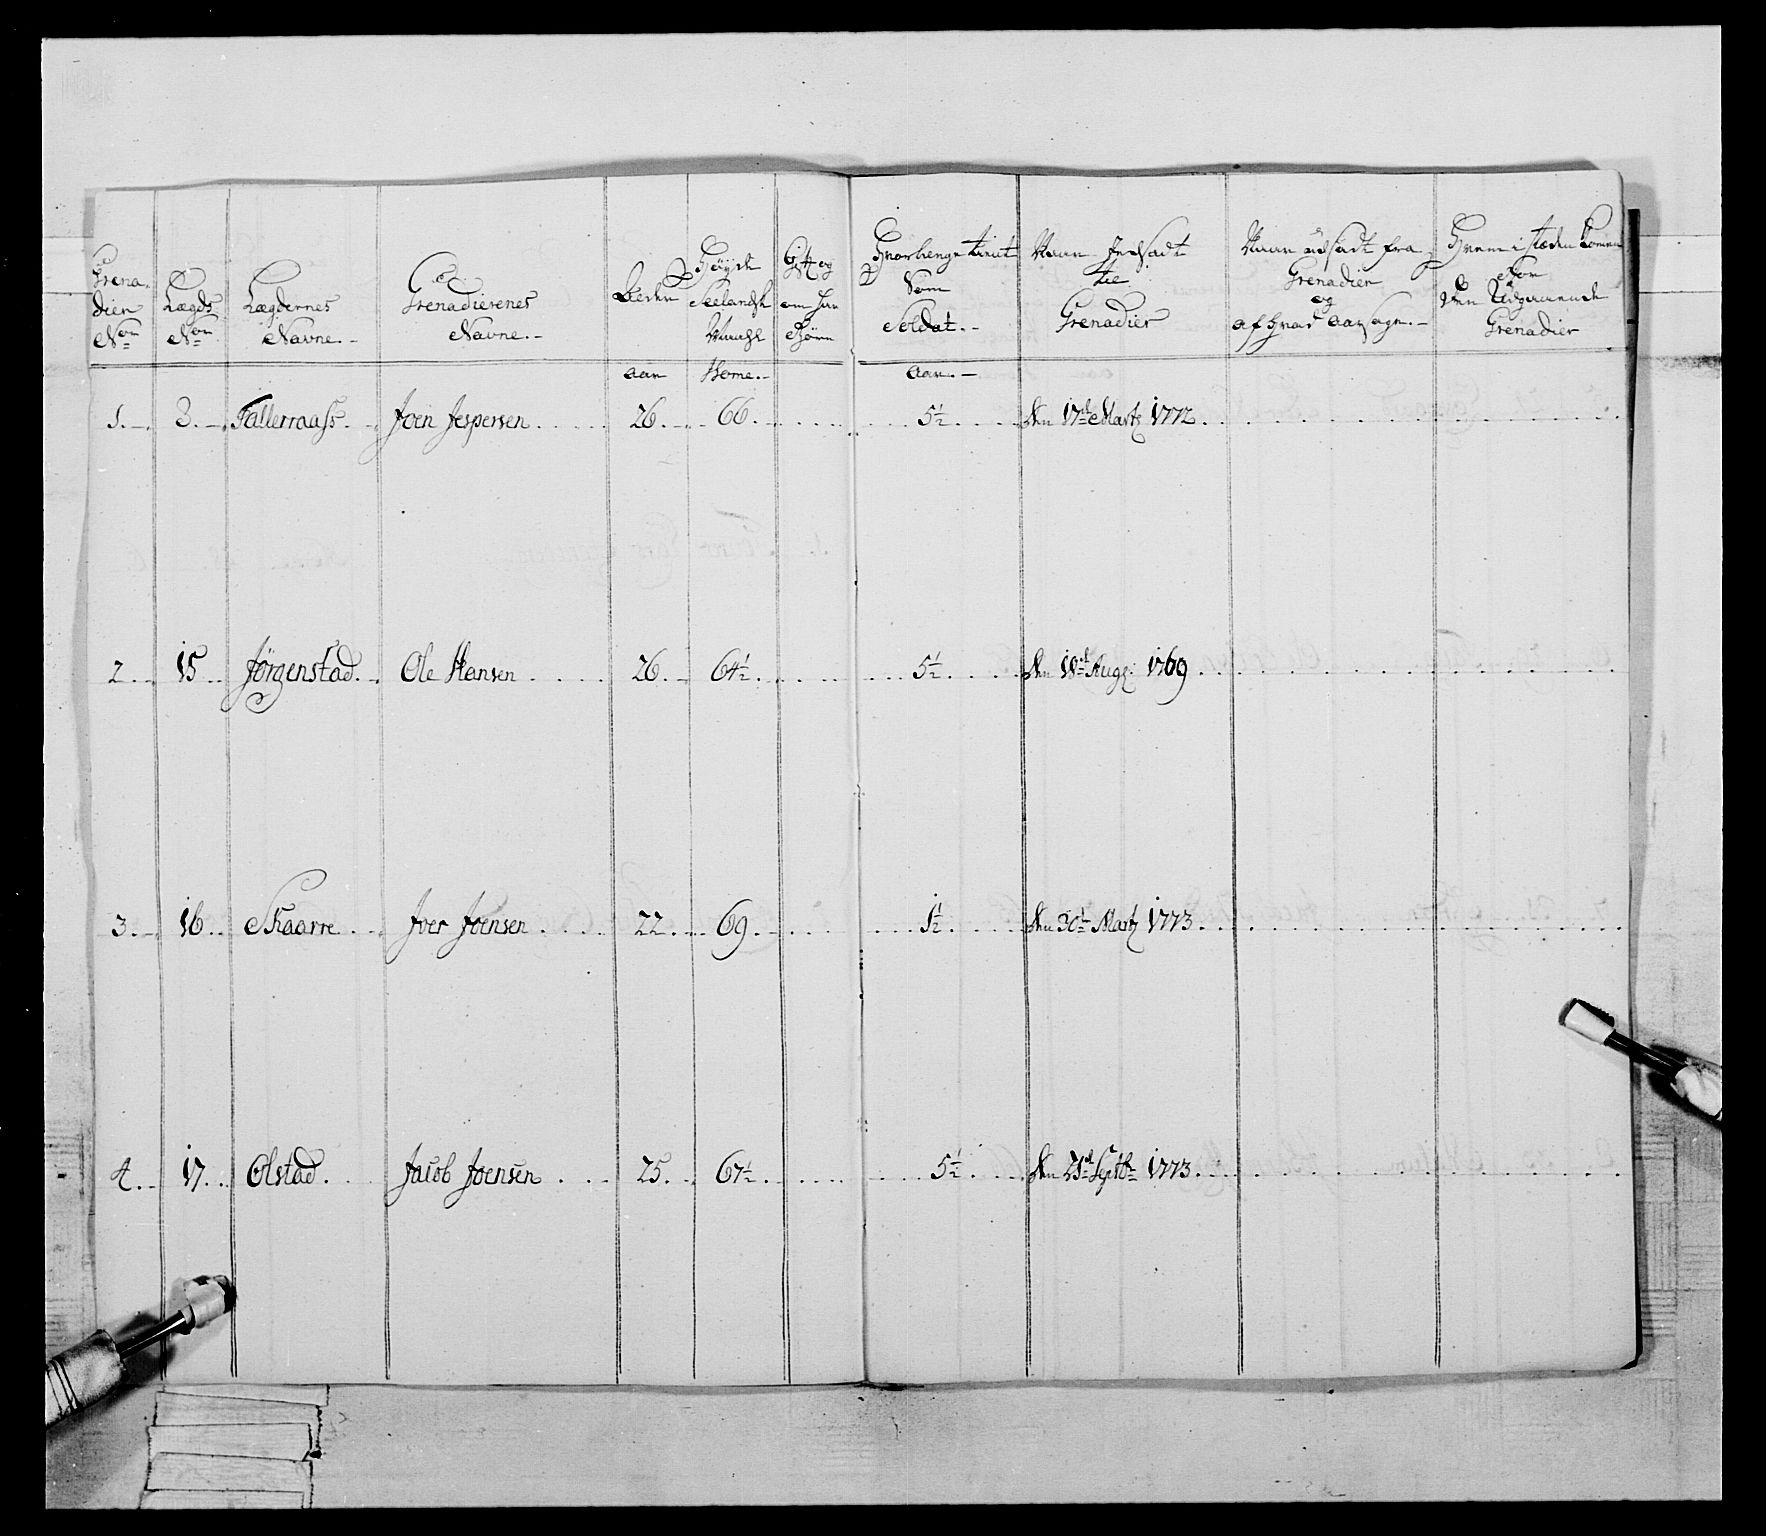 Grena-
dier
No
Lægds
No
Lægdernes
Navne.-
Grenadierenes
Navne.-
Alder
Høyde
Seelandsk
Gift og
om han
Børn
Hvorlenge tient
Som
Soldat.-
Naar Indsadt
til
Grenadier
Naar udsadt fra
Grenadier
og
af hvad Aarsage.-
Hvem i stæden kommen
for
den Udgaaende
Grenadier
Aar
Tome.-
Aar.-
1. 3. Tallerraass. Joen Jespersen 26. 66. 5½ den 17de Martz 1772.
2. 15. Jörgenstad. Ole Hansen 26. 64½. 5½. den 18de Aug: 1769.
3. 16. Skaarre. Joer Joensen 22. 69. 1½. den 30te Martz 1773.
4. 17. Olstad. Jacob Joensen 25. 67½. 5½. den 21de Septbr 1773.